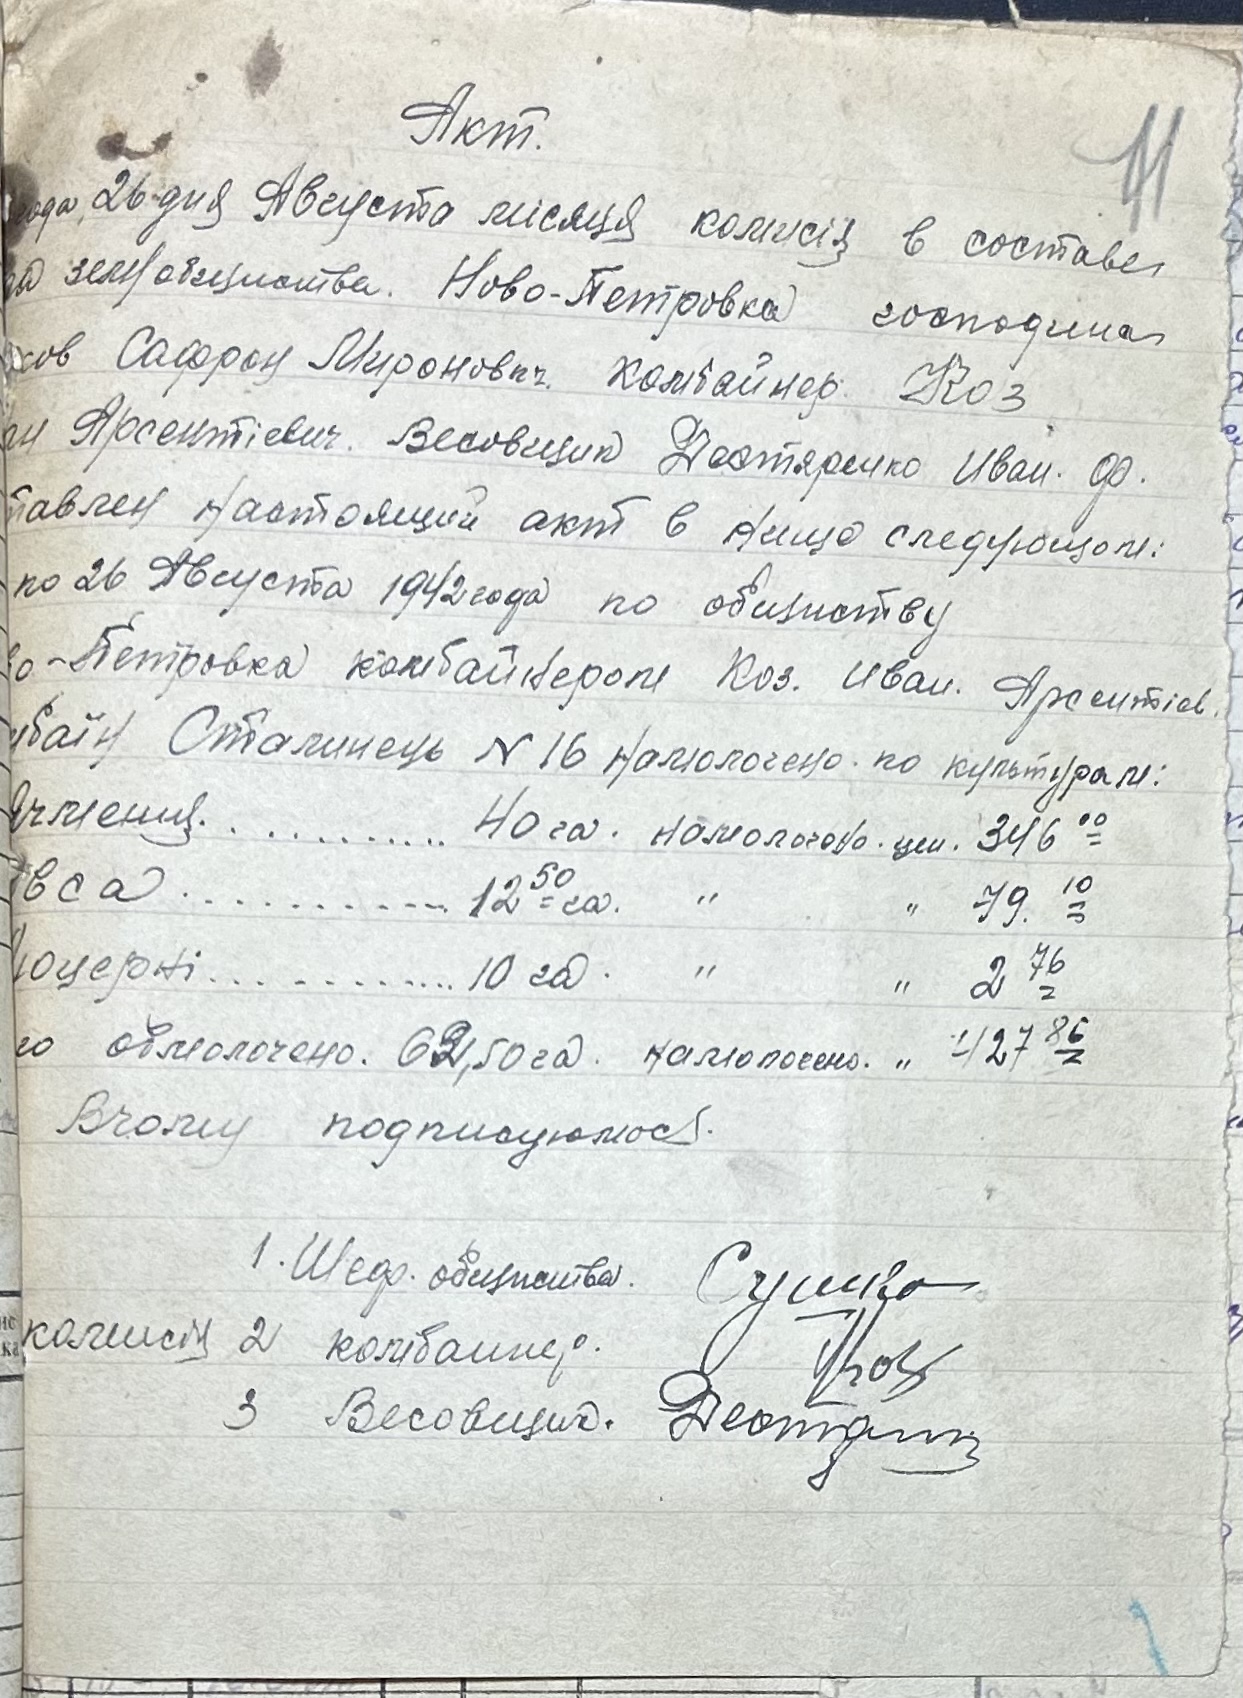 Акт.
41
года, 26 дня Августа місяця комисія в составе
да земобищиства. Ново-Петровка господина
ков Сафрон Миронович. Комбайнер. Коз
ан Арсентіевич. Весовщик Дехтяренко Иван. Ф.
тавлен настоящий акт в нище следующом:
по 26 Августа 1942 года по обищиству
во-Петровка комбайнером Коз. Иван. Арсентіев.
мбаїн Сталинець N 16 намолочено. по культурам:
ячменя. . . . . . . . . . . . 40 га. намолочено. цен. 346 00
вса . . . . . . . . . . . . 12 50 га. " " 79. 10
юцерні . . . . . . . . . . . . 10 га. " " 2 76
го обмолочено. 62,50 га. намолочено. " 427 86
Вчому подписуюмось.
1. Шеф. обищиства. Сушко
комисія 2 комбаинер. Коз
3 Весовщик.